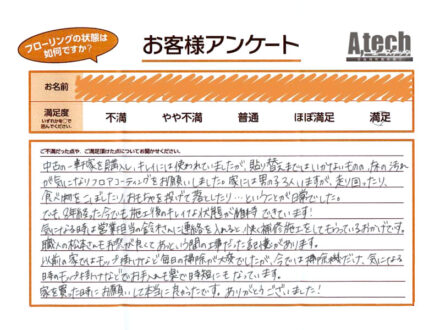 フローリングの状態は
如何ですか？
お客様アンケート
A.tech
お名前
満足度
いずれかを○で
囲んでください。
不満 やや不満 普通 ほぼ満足 満足
ご不満だった点や、ご満足頂けた点についてお聞かせください。
中古の一軒家を購入し、キレイには使われていましたが、貼り替えまではいかないものの、床の汚れ
が気になりフロアコーティングをお願いしました。家には男の子3人いますが、走り回ったり、
食べ物をこぼしたり、おもちゃを投げて落としたり…ということが日常でした。
でも、年経った今でも施工後のキレイな状態が維持できています！
気になる時は営業担当の鈴木さんに連絡を入れると、快く補修施工をしてもらっているおかげです。
職人の松本さんも手際が良くてあっという間の工事だった記憶があります。
以前の家ではモップ掛けなど毎日の掃除が大変でしたが、今では掃除機だけ、気になる
時のモップ掛けなどでお手入れも楽で時短にもなっています。
家を買った時にお願いして本当に良かったです。ありがとうございました！